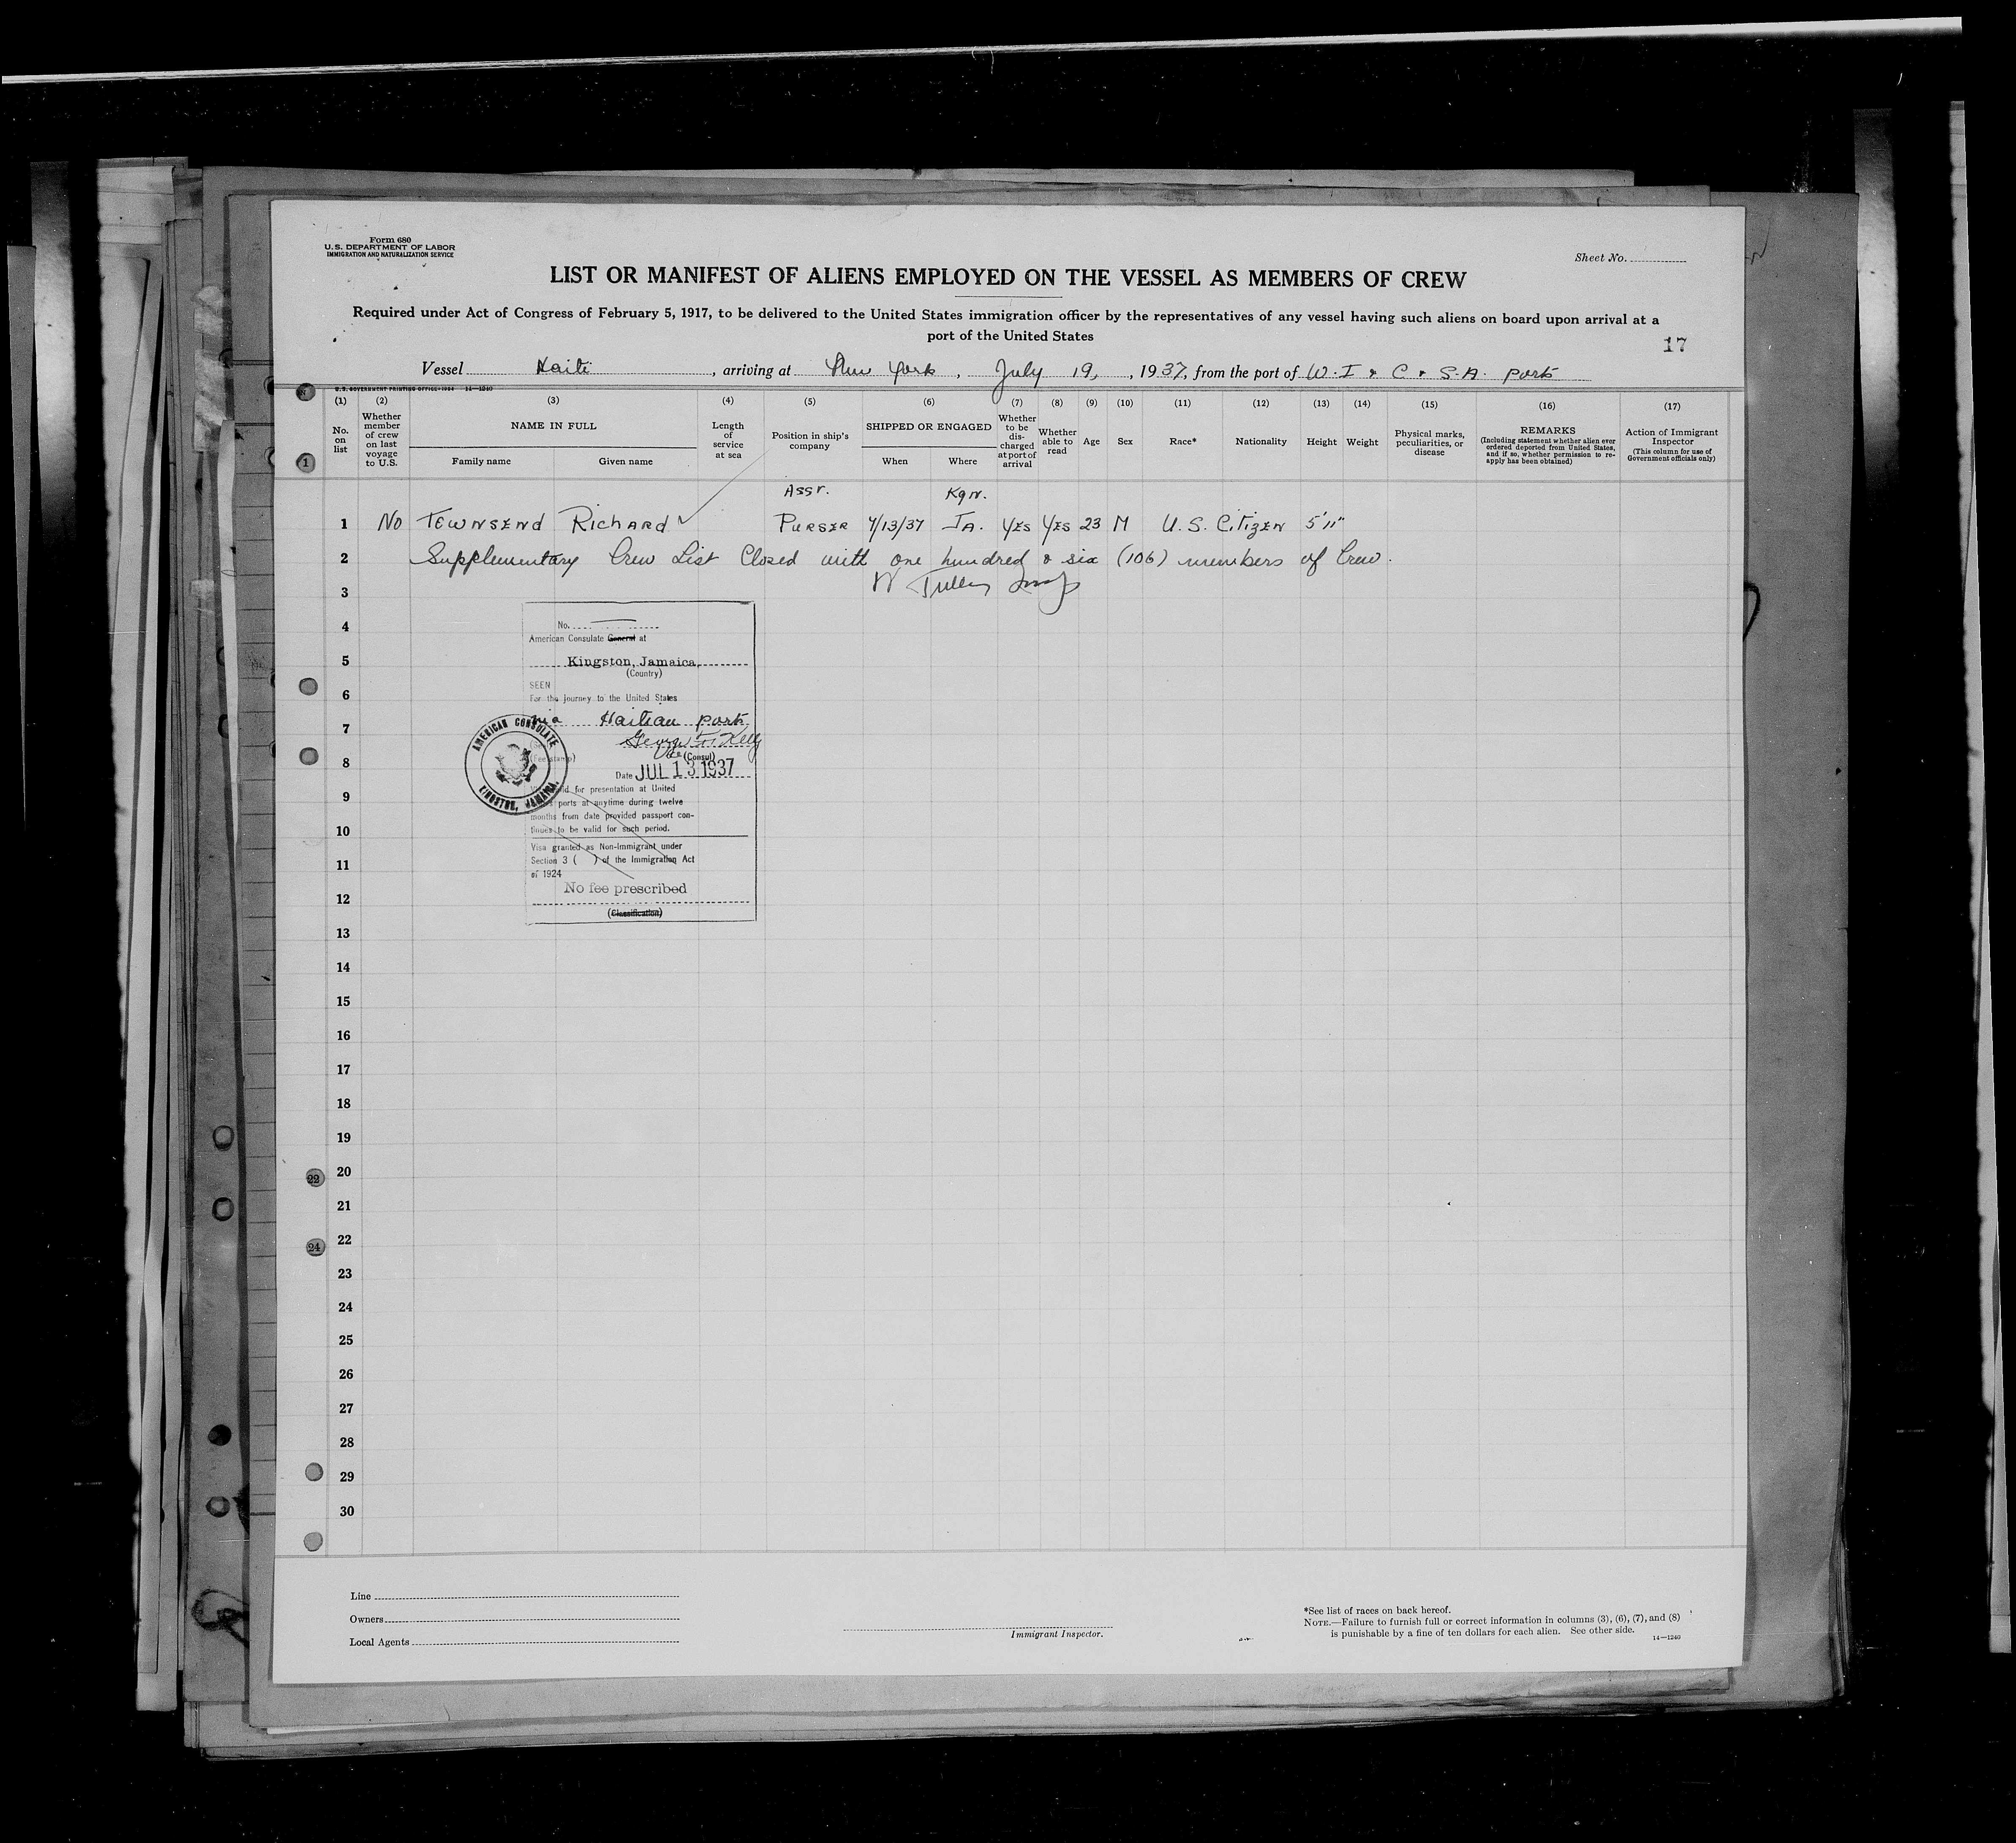 Form 680
U.S. DEPARTMENT OF LABOR
IMMIGRATION AND NATURALIZATION SERVICE
Sheet No.
LIST OR MANIFEST OF ALIENS EMPLOYED ON THE VESSEL AS MEMBERS OF CREW
Required under Act of Congress of February 5, 1917, to be delivered to the United States immigration officer by the representatives of any vessel having such aliens on board upon arrival at a
port of the United States
17
Vessel Haiti, arriving at New York, July 19, 1937, from the port of W. I & C & S.A. ports
U.S. GOVERNMENT PRINTING OFFICE 14—1240
(1) (2) (3) (4) (5) (6) (7) (8) (9) (10) (11) (12) (13) (14) (15) (16) (17)
No. on list
Whether member of crew on last voyage to U.S.
NAME IN FULL
Family name Given name
Length of service at sea
Position in ship's company
SHIPPED OR ENGAGED
When Where
Whether to be discharged at port of arrival
Whether able to read
Age
Sex
Race*
Nationality
Height
Weight
Physical marks, peculiarities, or disease
REMARKS
(Including statement whether alien ever ordered deported from United States, and if so, whether permission to reapply has been obtained)
Action of Immigrant Inspector
(This column for use of Government officials only)
Asst. Kgn.
1 No TOWNSEND RICHARD PURSER 7/13/37 JA. YES YES 23 M U. S. CITIZEN 5'11"
2 Supplementary Crew List Closed with one hundred & six (106) members of Crew.
3
4
5
6
7
8
9
10
11
12
13
14
15
16
17
18
19
20
21
22
23
24
25
26
27
28
29
30
No.
American Consulate General at
Kingston, Jamaica,
(Country)
SEEN
For the journey to the United States
via Haitian ports
(Consul)
(Fee stamp)
Date JUL 13 1937
for presentation at United
ports at anytime during twelve
months from date provided passport con-
tinues to be valid for such period.
Visa granted as Non-Immigrant under
Section 3 ( ) of the Immigration Act
of 1924
No fee prescribed
(Classification)
AMERICAN CONSULATE
KINGSTON, JAMAICA.
1
22
24
Line
Owners
Local Agents
Immigrant Inspector.
*See list of races on back hereof.
NOTE.—Failure to furnish full or correct information in columns (3), (6), (7), and (8)
is punishable by a fine of ten dollars for each alien. See other side.
14—1240